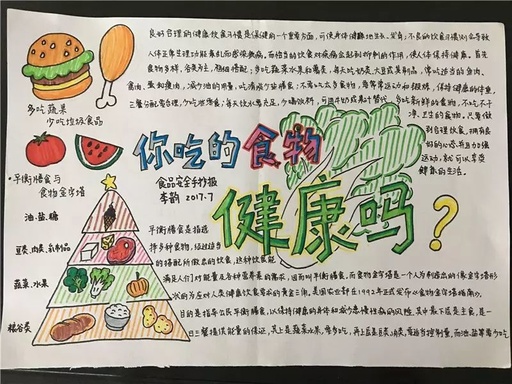 良好合理的健康饮食习惯是保健的一个重要方面,可使身体健康地生长、发育,不良的饮食习惯则会导致
人体正常生理功能紊乱而感染疾病。而恰当的饮食对疾病会起到抑制的作用,使人体保持健康。首先
食物多样,谷类为主,粗细搭配;多吃蔬菜水果和薯类,每天吃奶类、大豆或其制品,常吃适当的鱼肉、
禽肉、蛋和瘦肉,减少油的用量,吃清淡少盐膳食;不要吃太多食物,要常常运动和锻炼,保持健康的体重。
三餐分配要合理,少吃些零食,每天饮水要充足,少喝饮料,可选牛奶或果汁替代,多吃新鲜的食物,不吃不干
净、卫生的食物,只要做
到合理饮食,拥有良
好的心态,再适当加强
运动,就可以享受
健康的生活。
多吃蔬果
少吃垃圾食品
你吃的食物
健康吗?
食品安全手抄报
李韵 2017.7
·平衡膳食与
食物金字塔
油、盐、糖
豆类、肉类、乳制品
蔬菜、水果
粮谷类
平衡膳食是指选
择多种食物,经过适当
的搭配所做出的饮食,这种饮食能
满足人们对能量及各种营养素的需求,因而叫平衡膳食,而食物金字塔是一个人为制造出的保金字塔形
状的为应对人类健康饮食需求的黄金三角。是美国农业部在1992年正式发布《食物金字塔指南》,
目的是指导公民平衡膳食,以保持健康的身体和减少患慢性病的风险。其中最下底是主食,是一
日三餐提供能量的保证,其上是蔬菜水果,